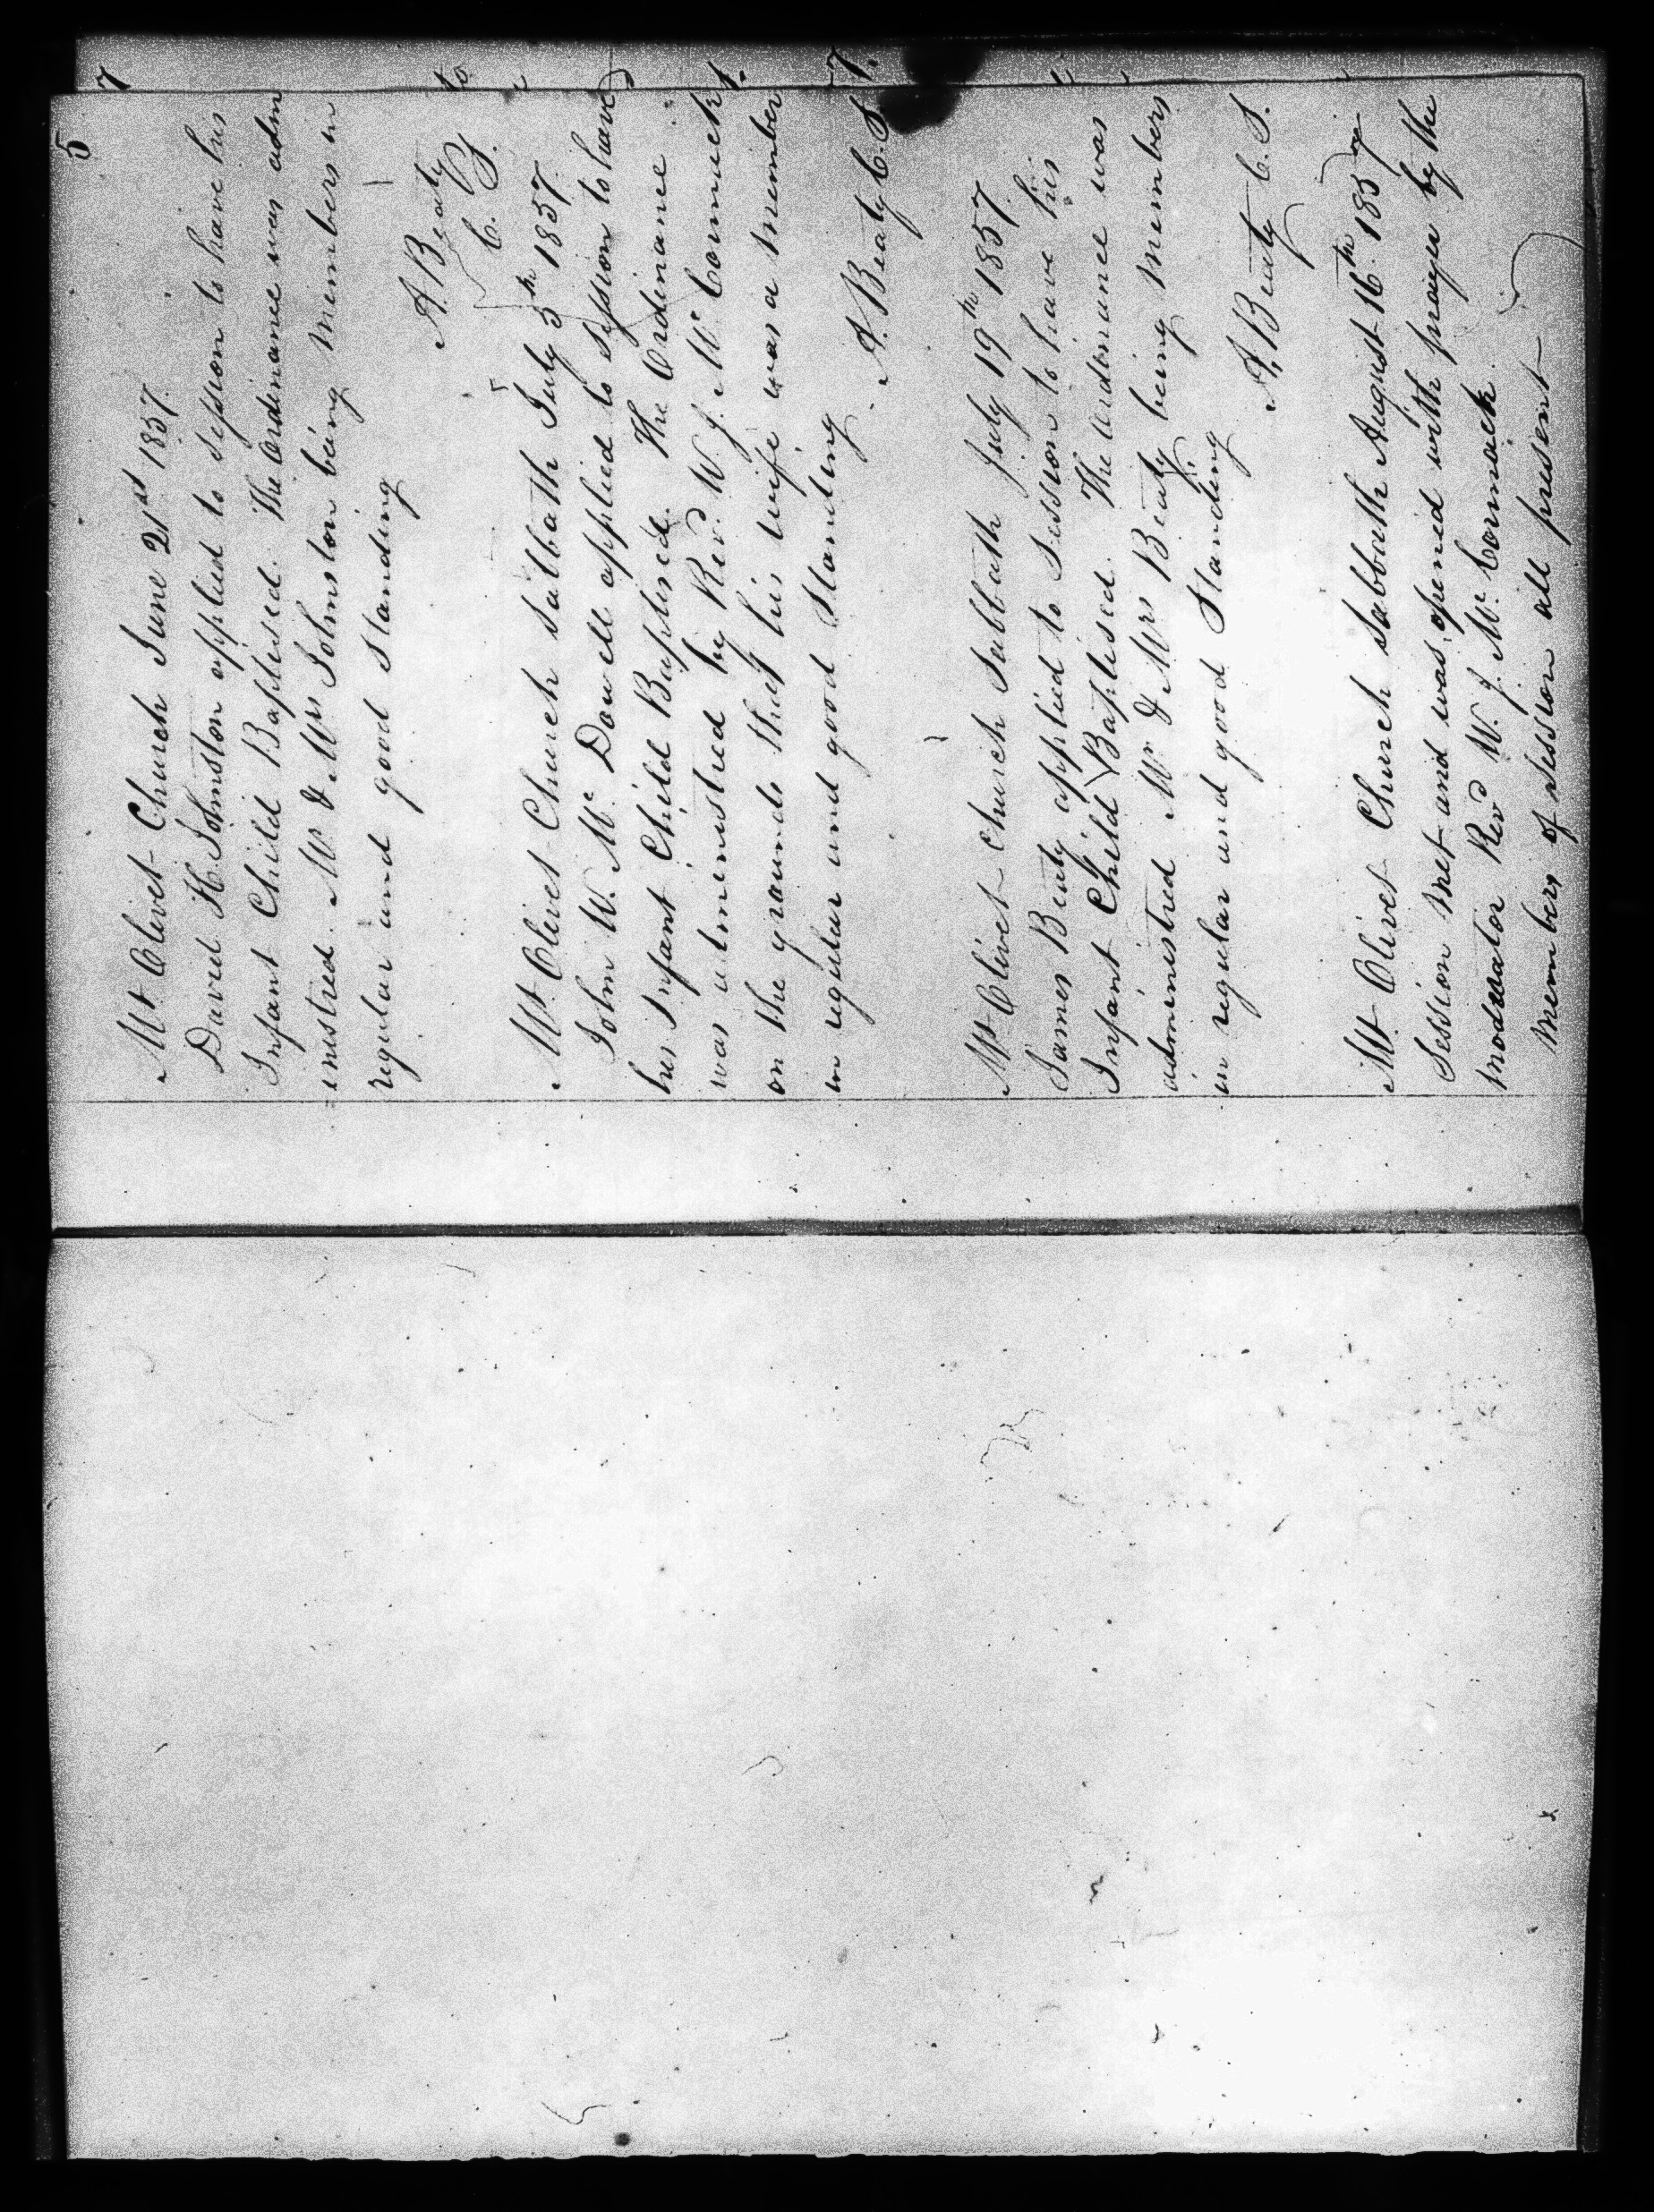 5
Mt. Olivet Church June 21st 1857.
David H. Johnston applied to session to have his
Infant Child Baptised. The Ordinance was adm
inistred. Mr. & Mrs Johnston being members in
regular and good standing
A. Beaty
C. S.
Mt. Olivet Church Sabbath July 5th 1857.
John W. Mc Dowell applied to session to have
his Infant Child Baptised. The Ordinance
was administred by Revd. W. J. Mc Cormick
on the grounds that his wife was a member
in regular and good standing.
A. Beaty C. S.
Mt Olivet Church Sabbath July 19th 1857.
James Beaty applied to Session to have his
Infant Child Baptised. The ordinance was
administred Mr & Mrs Beaty being members
in regular and good standing
A. Beaty C. S.
Mt Olivet Church Sabbath August 16th 1857
Session met and was opened with prayer by the
modrator Revd W. J. Mc Cormick.
members of session all present